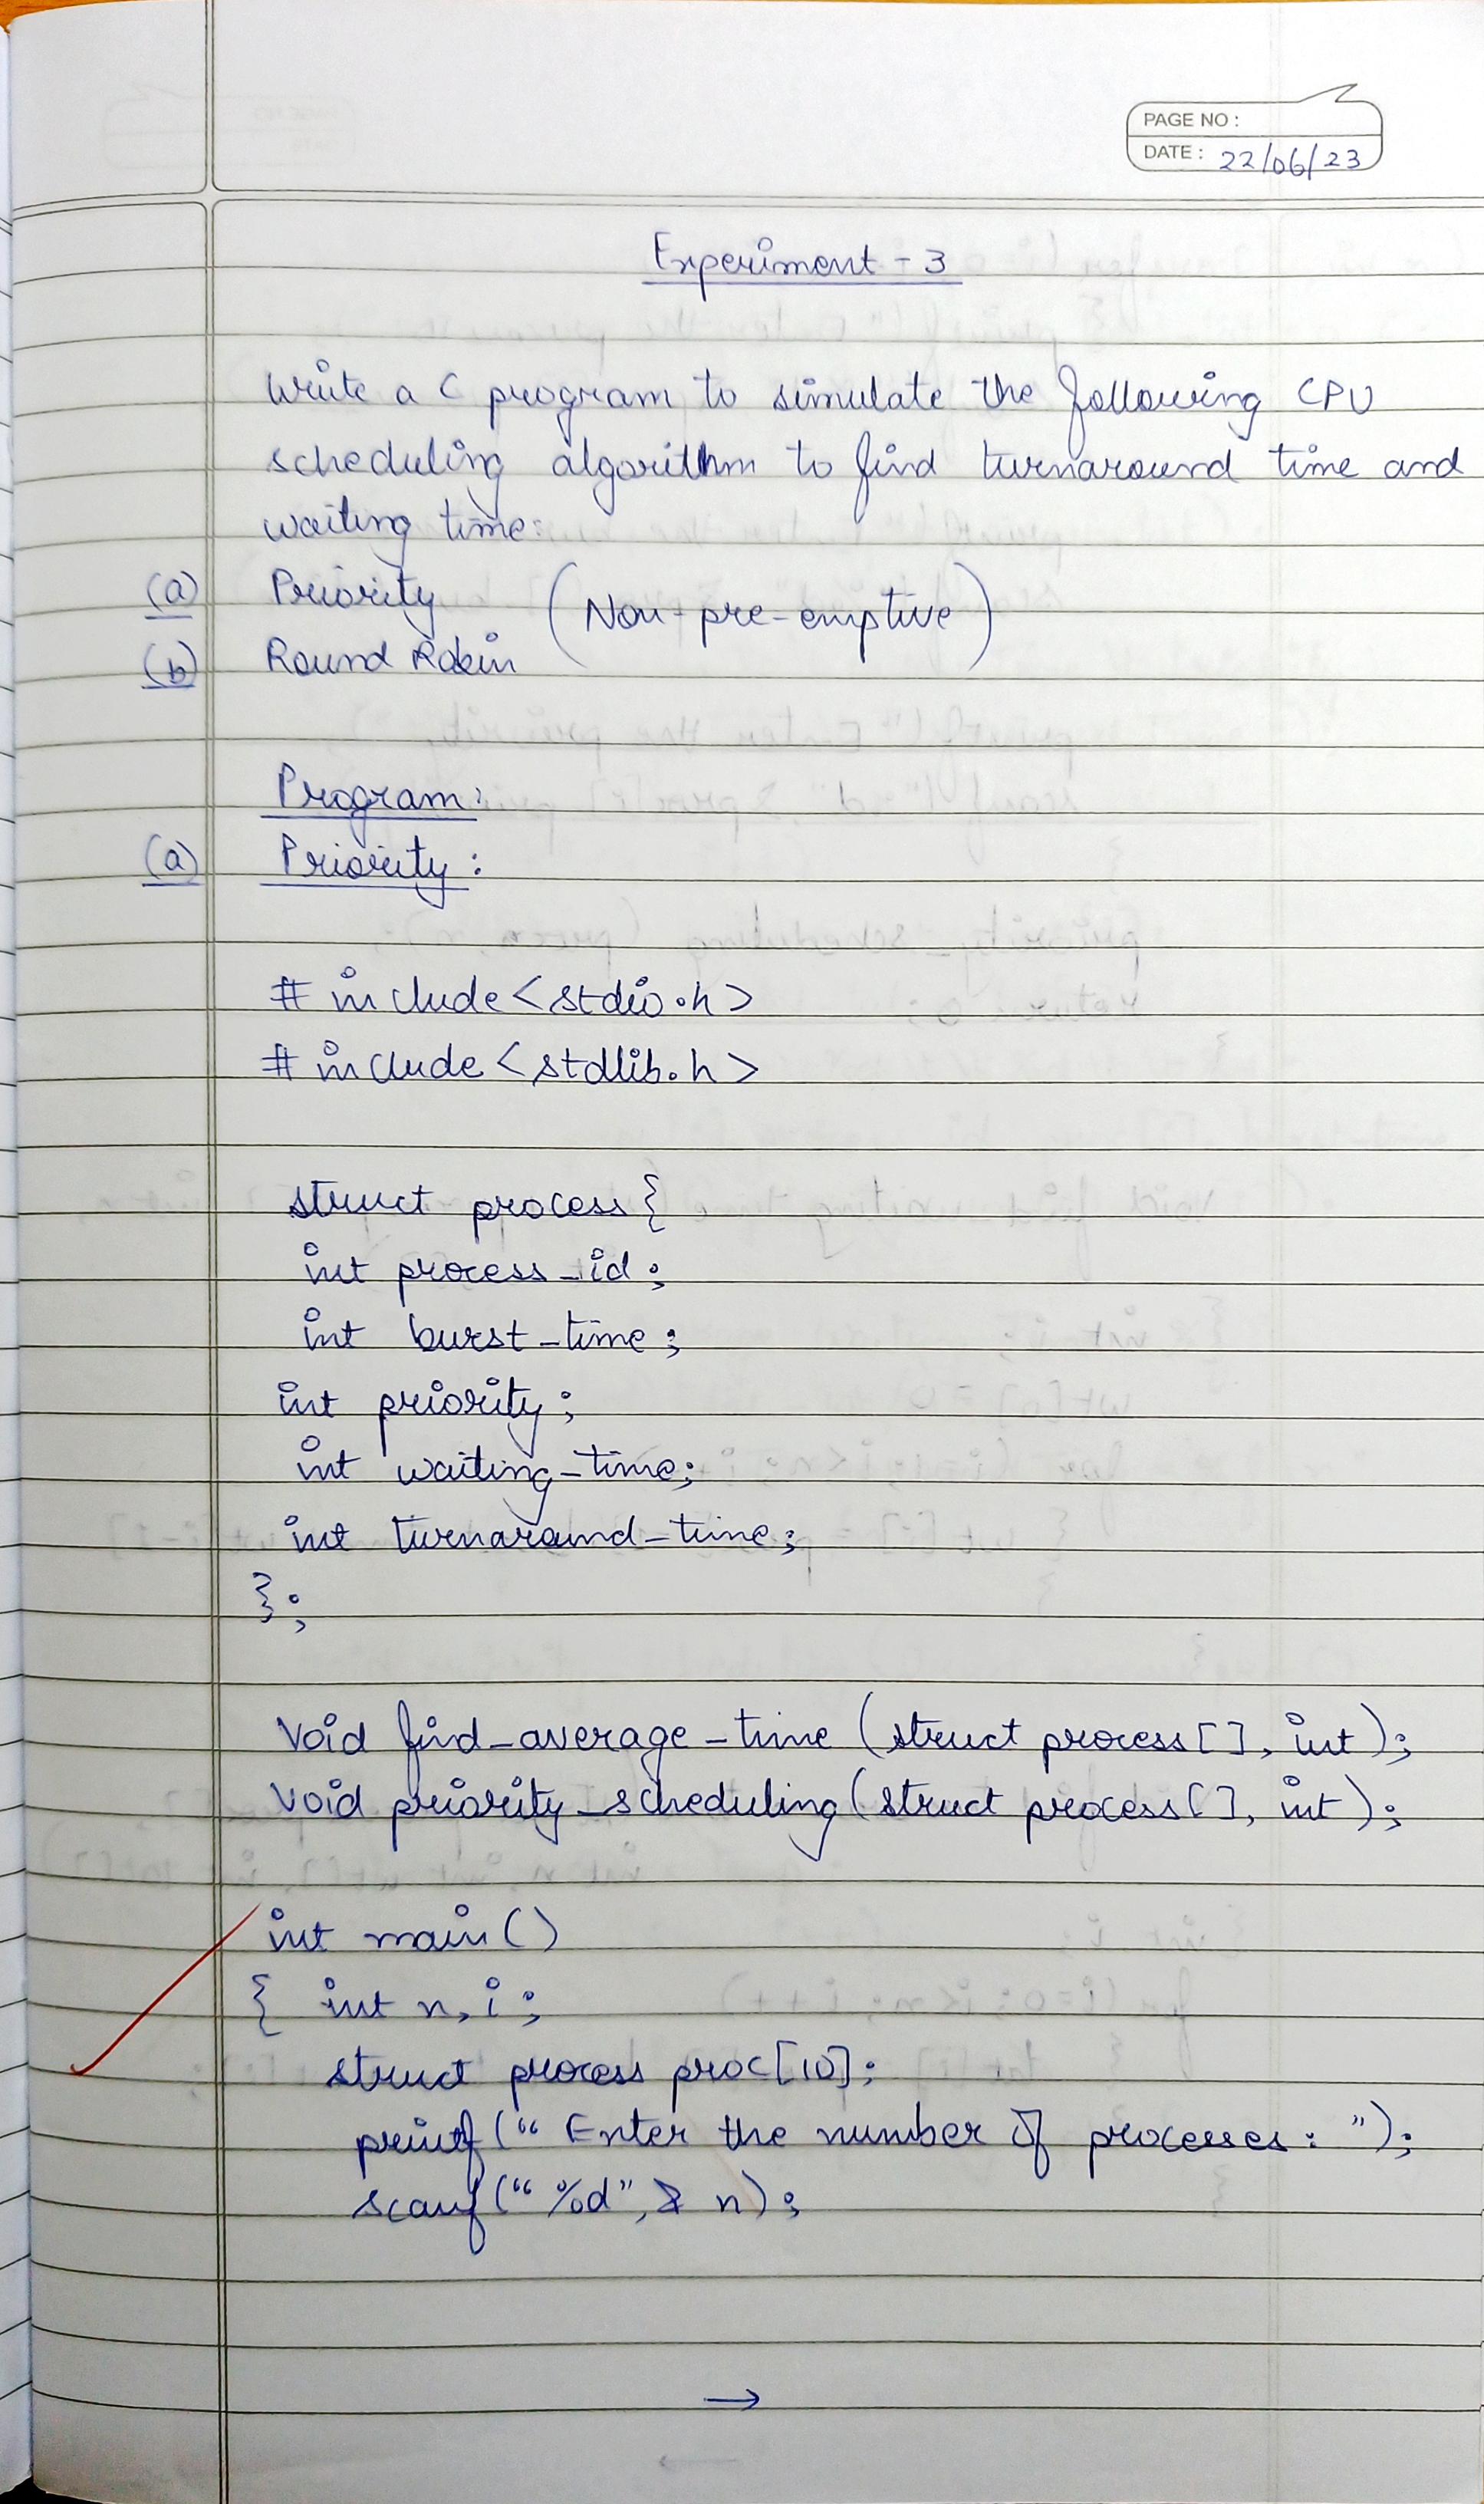 PAGE NO :
DATE : 22/06/23
Experiment - 3
Write a C program to simulate the following CPU
scheduling algorithm to find turnaround time and
waiting time:
(a) Priority (Non-pre-emptive)
(b) Round Robin
Program:
(a) Priority :
# include <stdio.h>
# include <stdlib.h>
struct process {
int process_id ;
int burst_time ;
int priority ;
int waiting_time;
int turnaround_time;
} ;
Void find_average_time (struct process[], int);
Void priority_scheduling (struct process[], int);
int main ()
{ int n, i ;
struct process proc[10];
printf (“ Enter the number of processes : ”);
scanf (“ %d”, & n) ;
→